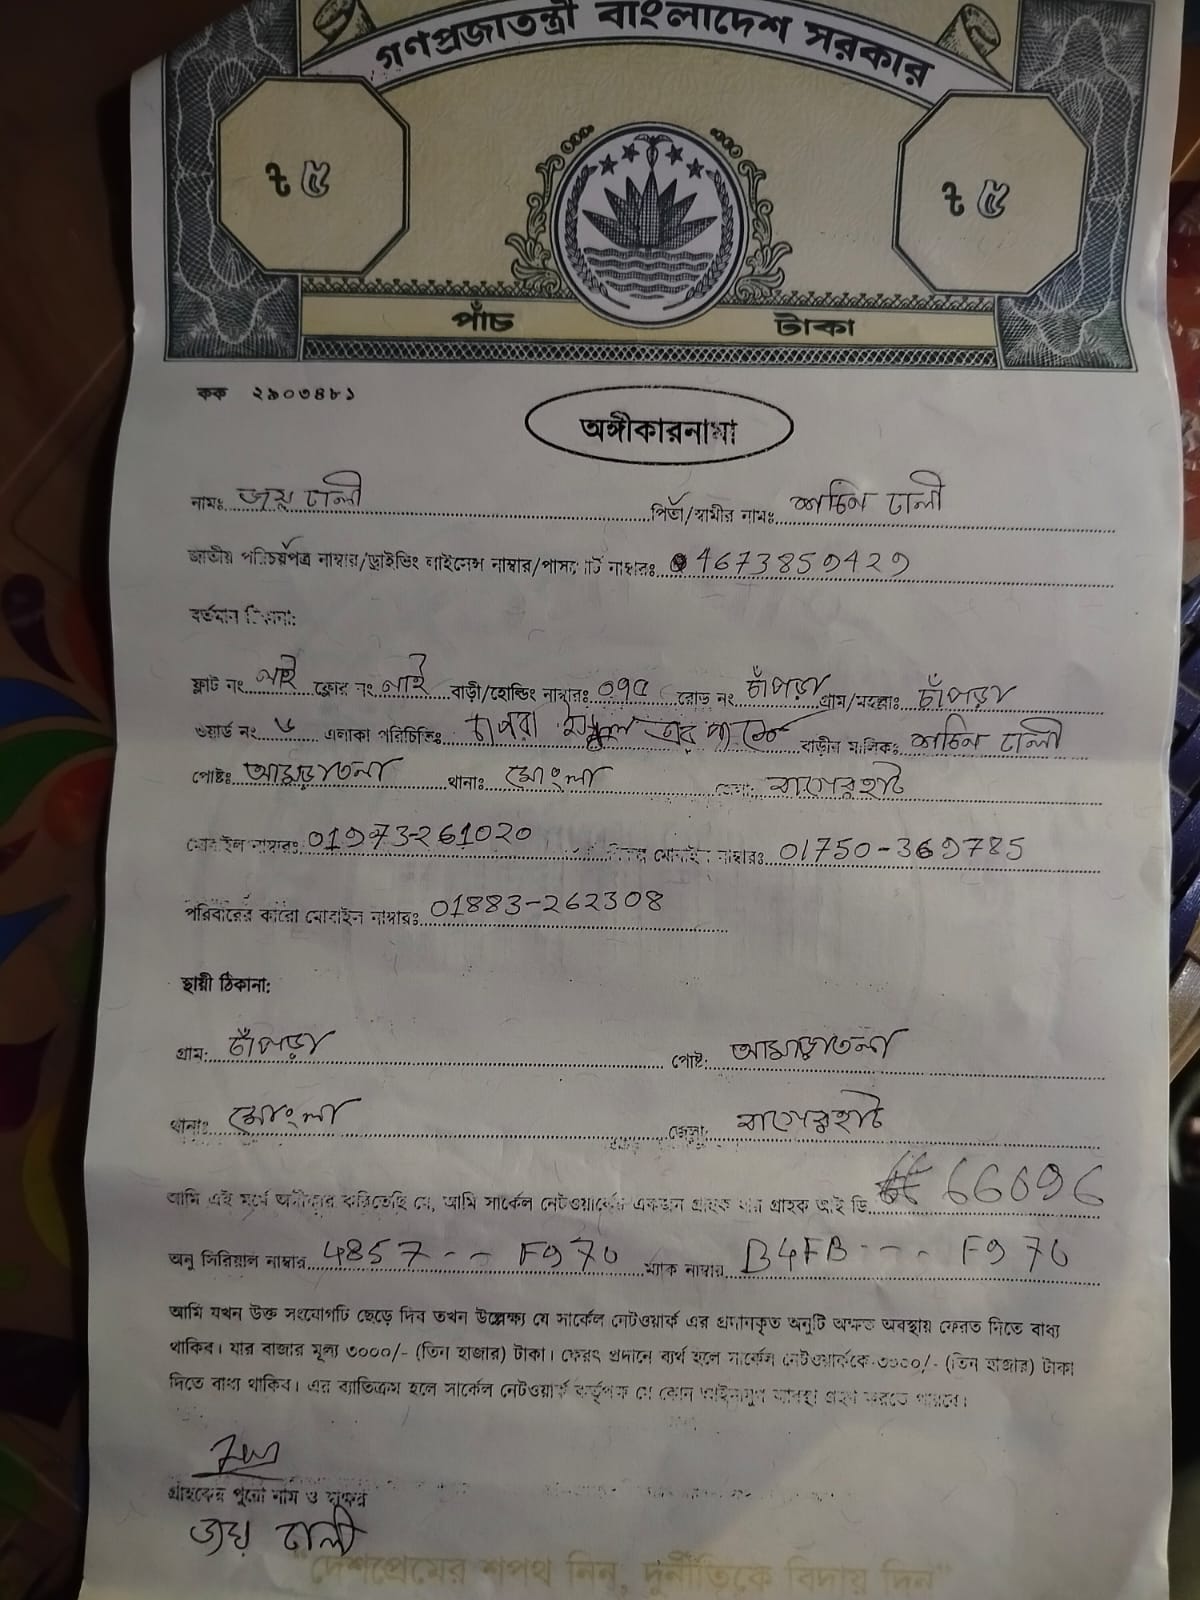 গণপ্রজাতন্ত্রী বাংলাদেশ সরকার
৳ ৫ ৳ ৫
পাঁচ টাকা
কক ২৯০৩৪৮১
অঙ্গীকারনামা
নামঃ জয় ঢালী পিতা/স্বামীর নামঃ শচিন ঢালী
জাতীয় পরিচয়পত্র নাম্বার/ড্রাইভিং লাইসেন্স নাম্বার/পাসপোর্ট নাম্বারঃ 4673859429
বর্তমান ঠিকানা:
ফ্লাট নং নাই ফ্লোর নং নাই বাড়ী/হোল্ডিং নাম্বারঃ ০৭৫ রোড নং চাঁপড়া গ্রাম/মহল্লাঃ চাঁপড়া
ওয়ার্ড নং ৬ এলাকা পরিচিতিঃ চাপরা স্কুল এর পাশে বাড়ীর মালিকঃ শচিন ঢালী
পোষ্টঃ আমড়াতলা থানাঃ মোংলা জেলাঃ বাগেরহাট
মোবাইল নাম্বারঃ 01973-261020 মোবাইল নাম্বারঃ 01750-369785
পরিবারের কারো মোবাইল নাম্বারঃ 01883-262308
স্থায়ী ঠিকানা:
গ্রাম: চাঁপড়া পোষ্ট: আমড়াতলা
থানাঃ মোংলা জেলা: বাগেরহাট
আমি এই মর্মে অঙ্গীকার করিতেছি যে, আমি সার্কেল নেটওয়ার্কের একজন গ্রাহক যার গ্রাহক আই ডি 66096
অনু সিরিয়াল নাম্বার 4857--- F970 ম্যাক নাম্বার B4FB---- F970
আমি যখন উক্ত সংযোগটি ছেড়ে দিব তখন উল্লেক্ষ্য যে সার্কেল নেটওয়ার্ক এর প্রদানকৃত অনুটি অক্ষত অবস্থায় ফেরত দিতে বাধ্য
থাকিব। যার বাজার মূল্য ৩০০০/- (তিন হাজার) টাকা। ফেরৎ প্রদানে ব্যর্থ হলে সার্কেল নেটওয়ার্ককে ৩০০০/- (তিন হাজার) টাকা
দিতে বাধ্য থাকিব। এর ব্যতিক্রম হলে সার্কেল নেটওয়ার্ক কর্তৃপক্ষ যে কোন আইনানুগ ব্যবস্থা গ্রহণ করতে পারবে।
গ্রাহকের পুরো নাম ও স্বাক্ষর
জয় ঢালী
"দেশপ্রেমের শপথ নিন, দুর্নীতিকে বিদায় দিন"